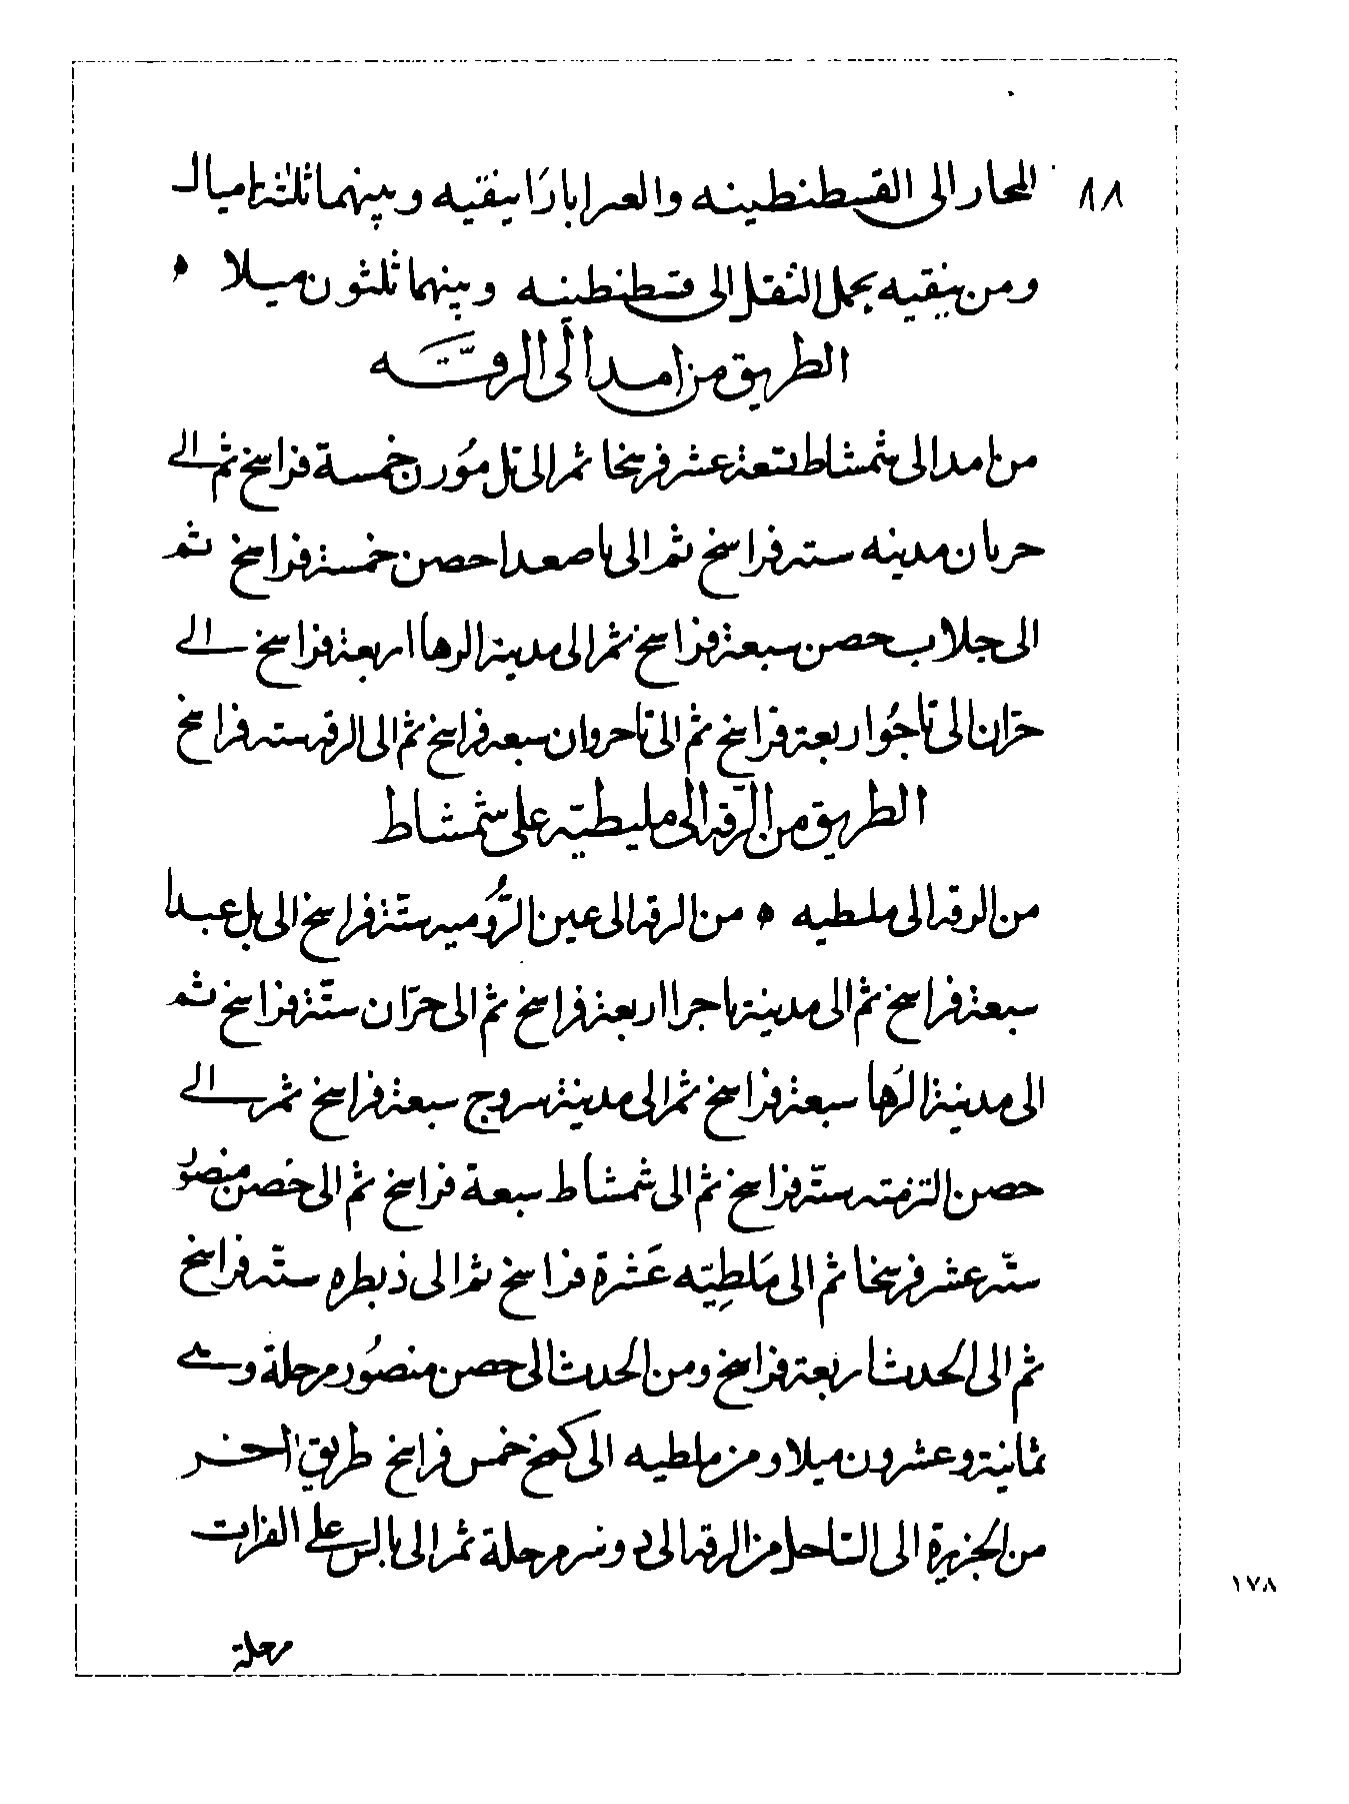 ٨٨
المحار الى القسطنطينه والعرابا دَانيقيه وبينهما ثلثة اميال
ومن نيقيه يحمل الثقل الى قسطنطينه وبينهما ثلثون ميلا ه
الطريق من امد الَى الرقّه
من امد الى شمشاط تسعة عشر فرسخا ثم الى تل مُوزن خمسة فراسخ ثم الى
حربان مدينه سته فراسخ ثم الى باصعدا حصن خمسة فراسخ ثم
الى جلاب حصن سبعة فراسخ ثم الى مدينة الرها اربعة فراسخ الى
حرّان الى تاجُوا ربعة فراسخ ثم الى تاحروان سبعه فراسخ ثم الى الرقه سته فراسخ
الطريق من الرّقه الى مليطيّه على شمشاط
من الرقه الى ملطيه ه من الرقه الى عين الرُّوميه ستّة فراسخ الى تل عبدا
سبعة فراسخ ثم الى مدينة باجرا اربعة فراسخ ثم الى حرّان ستّة فراسخ ثم
الى مدينة الرَها سبعة فراسخ ثم الى مدينة سروج سبعة فراسخ ثم الى
حصن التزمته ستّه فراسخ ثم الى شمشاط سبعة فراسخ ثم الى حصن منصُور
ستّه عشر فرسخا ثم الى مَلطِيّه عَشرة فراسخ ثم الى ذبطره ستّه فراسخ
ثم الى الحدث اربعة فراسخ ومن الحدث الى حصن منصُور مرحلة وهي
ثمانية وعشرون ميلا ومن ملطيه الى كمخ خمس فراسخ طريق اخر
من الجزيرة الى الساحل من الرقه الى دوسر مرحلة ثم الى بالس على الفرات
مرحلة
١٧٨